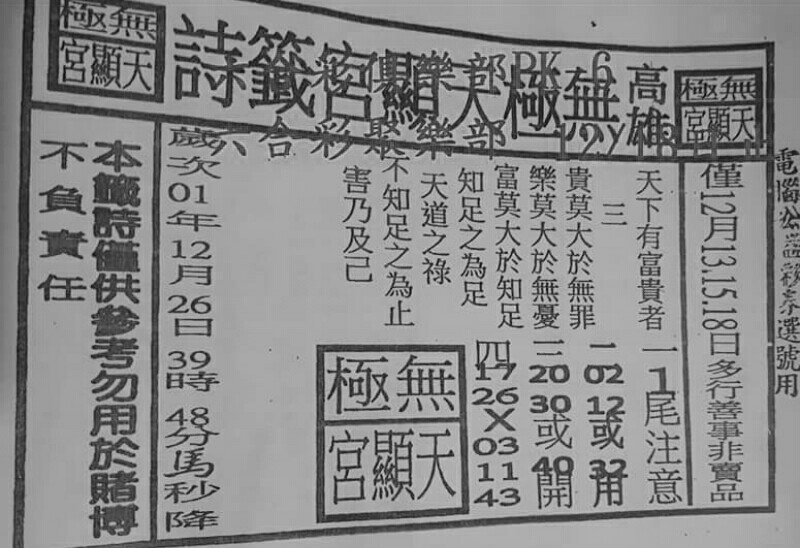 電腦公益彩券選號用
無極
天顯宮
高雄無極天顯宮籤詩
彩俱樂部PK 6
六合彩聚樂部
無極
天顯宮
僅12月13.15.18日多行善事非賣品
天下有富貴者
三
貴莫大於無罪
樂莫大於無憂
富莫大於知足
知足之為足
天道之祿
不知足之為止
害乃及己
一1尾注意
二02 12或32用
三20 30或40開
四17 26X03 11 43
無極
天顯宮
歲次01年12月26日39時48分馬秒降
本籤詩僅供參考勿用於賭博
不負責任